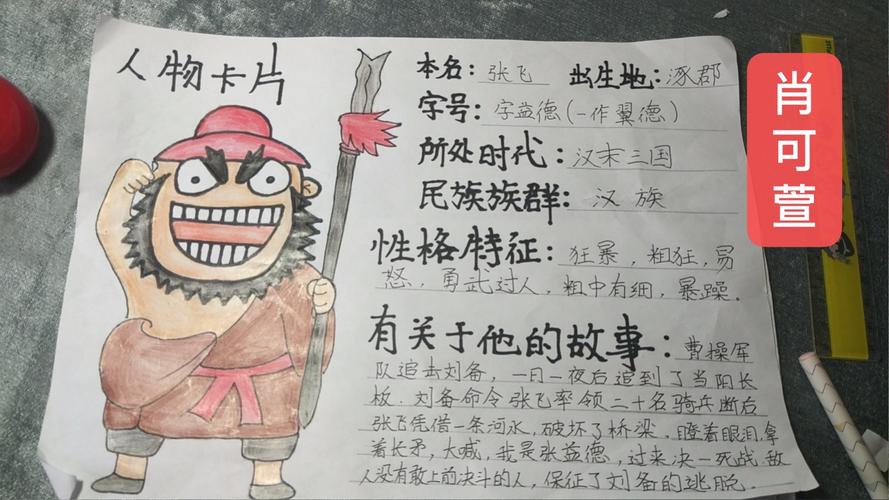 人物卡片
本名：张飞 出生地：涿郡
字号：字益德(一作翼德)
所处时代：汉末三国
民族族群：汉族
性格特征：狂暴，粗狂，易
怒，勇武过人，粗中有细，暴躁.
有关于他的故事：曹操军
队追击刘备，一日一夜后追到了当阳长
板.刘备命令张飞率领二十名骑兵断后
张飞凭借一条河水,破坏了桥梁,瞪着眼泪,拿
着长矛,大喊,我是张益德,过来决一死战.敌
人没有敢上前决斗的人,保证了刘备的逃脱.
肖可萱